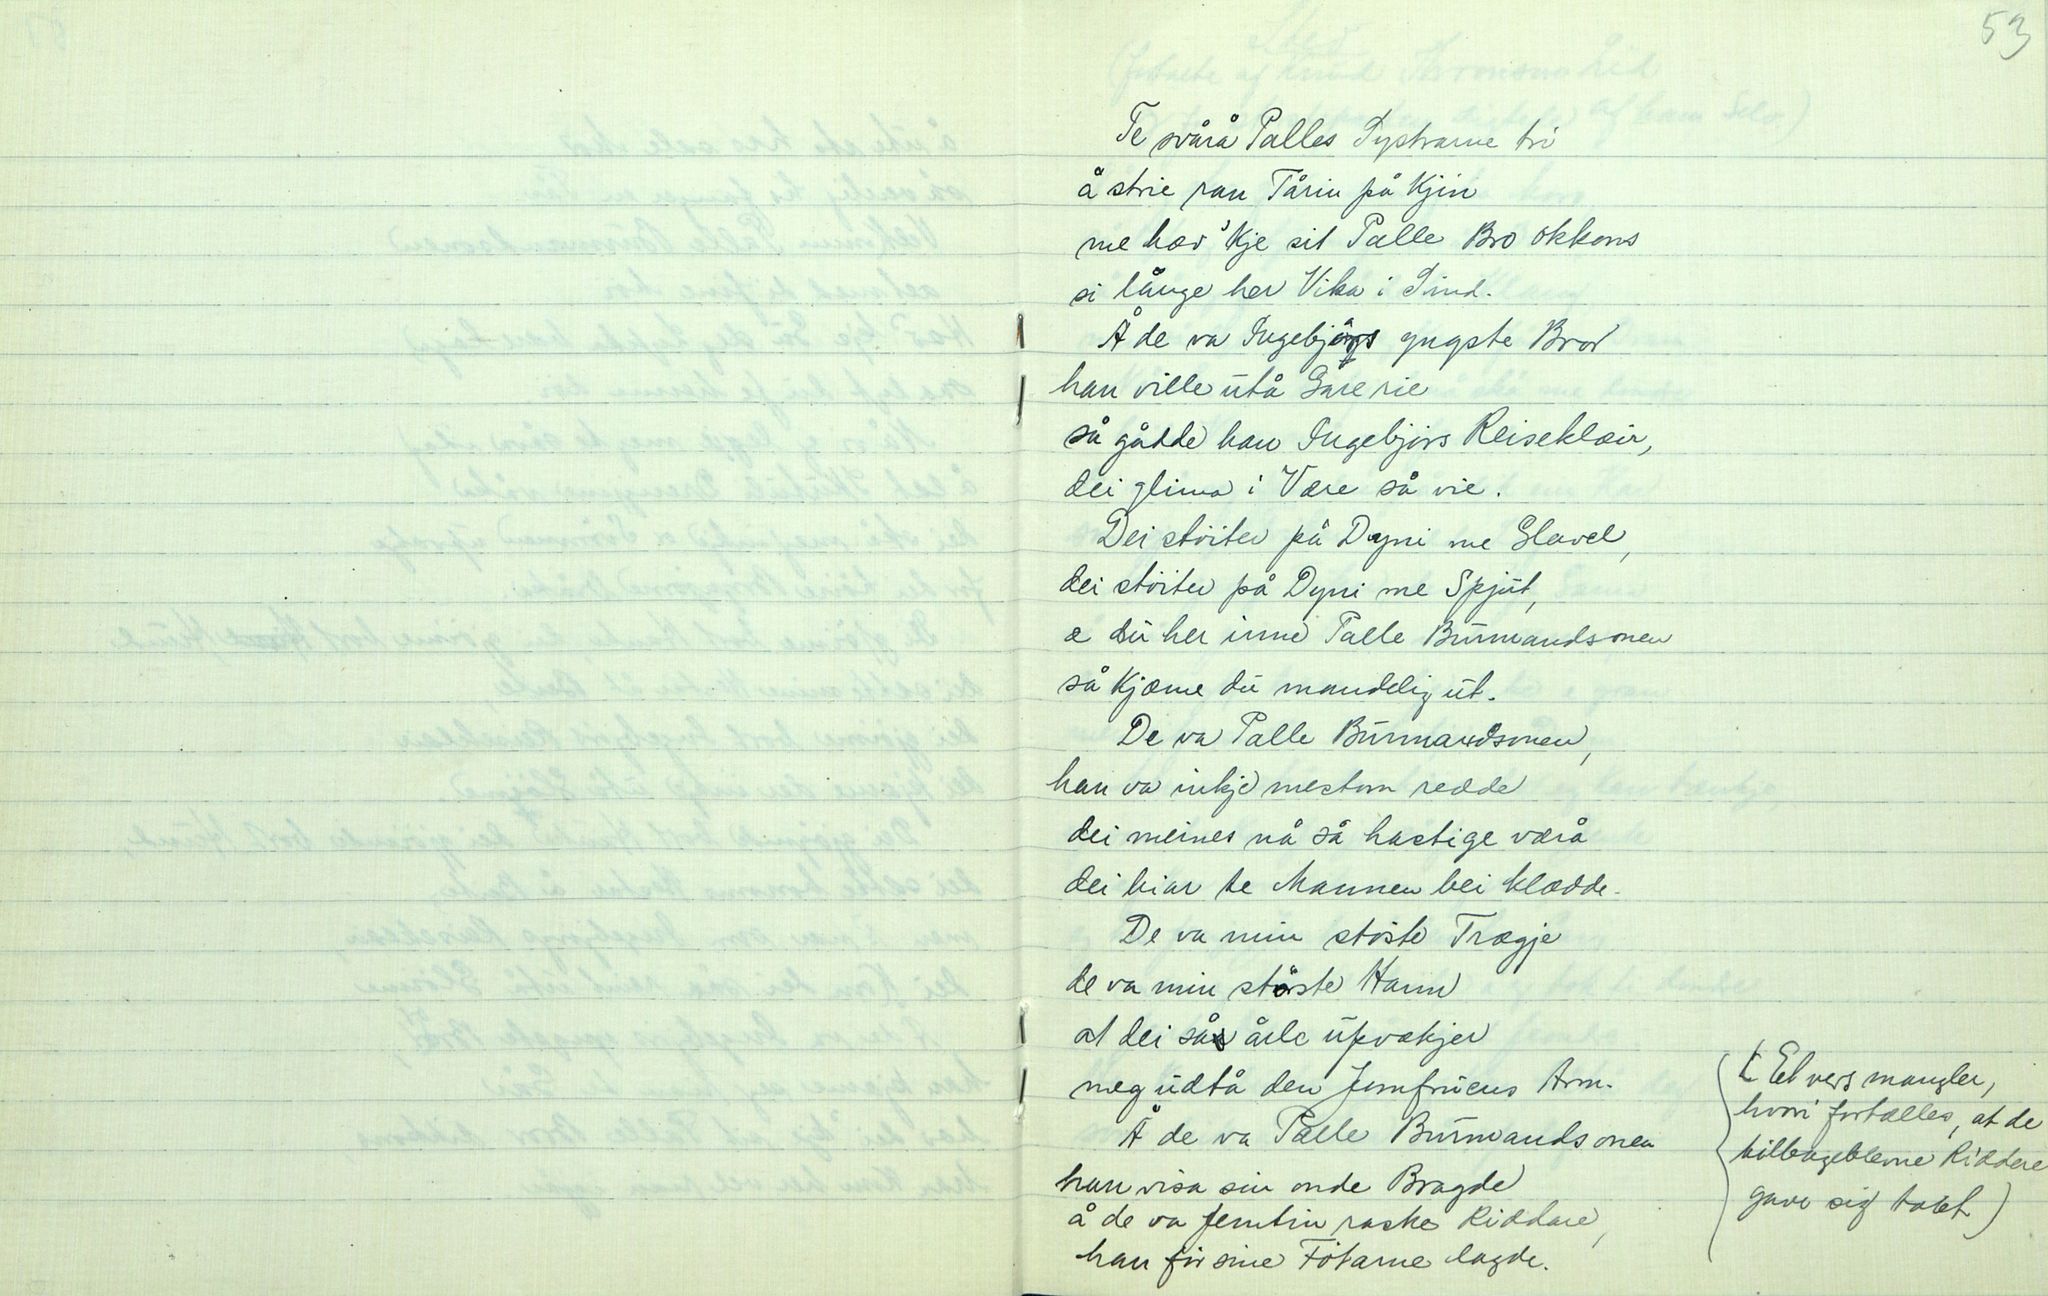 53
Te svårå Palles Systrarne tri
å strie ran Tårin på Kjin
me hav' kje sit Palle Bro okkons
si långe her Vika i Sind.
Å de va Ingebjørgs yngste Bror
han ville utå Gare rie
så gådde han Ingebjørs Reiseklæir,
dei glima i Være så vie.
Dei støiter på Dyni me Glavel,
dei støiter på Dyni me Spjut,
æ du her inne Palle Burmandsonen
så kjæme du mandelig ut.
De va Palle Burmandsonen,
han va inkje mestom redde
dei meines nå så hastige værå
dei hiar te Mannen bei klædde.
De va min støste Trægje
de va min største Harm
at dei så årle upvækjer
meg udtå den Jomfruens Arm.
Å de va Palle Burmandsonen
han visa sin onde Bragde
å de va femtin raske Riddare,
han før sine Føtarne lagde.
(Et vers mangler,
hvori fortælles, at de
tilbageblevne Riddere
gave sig tabt)